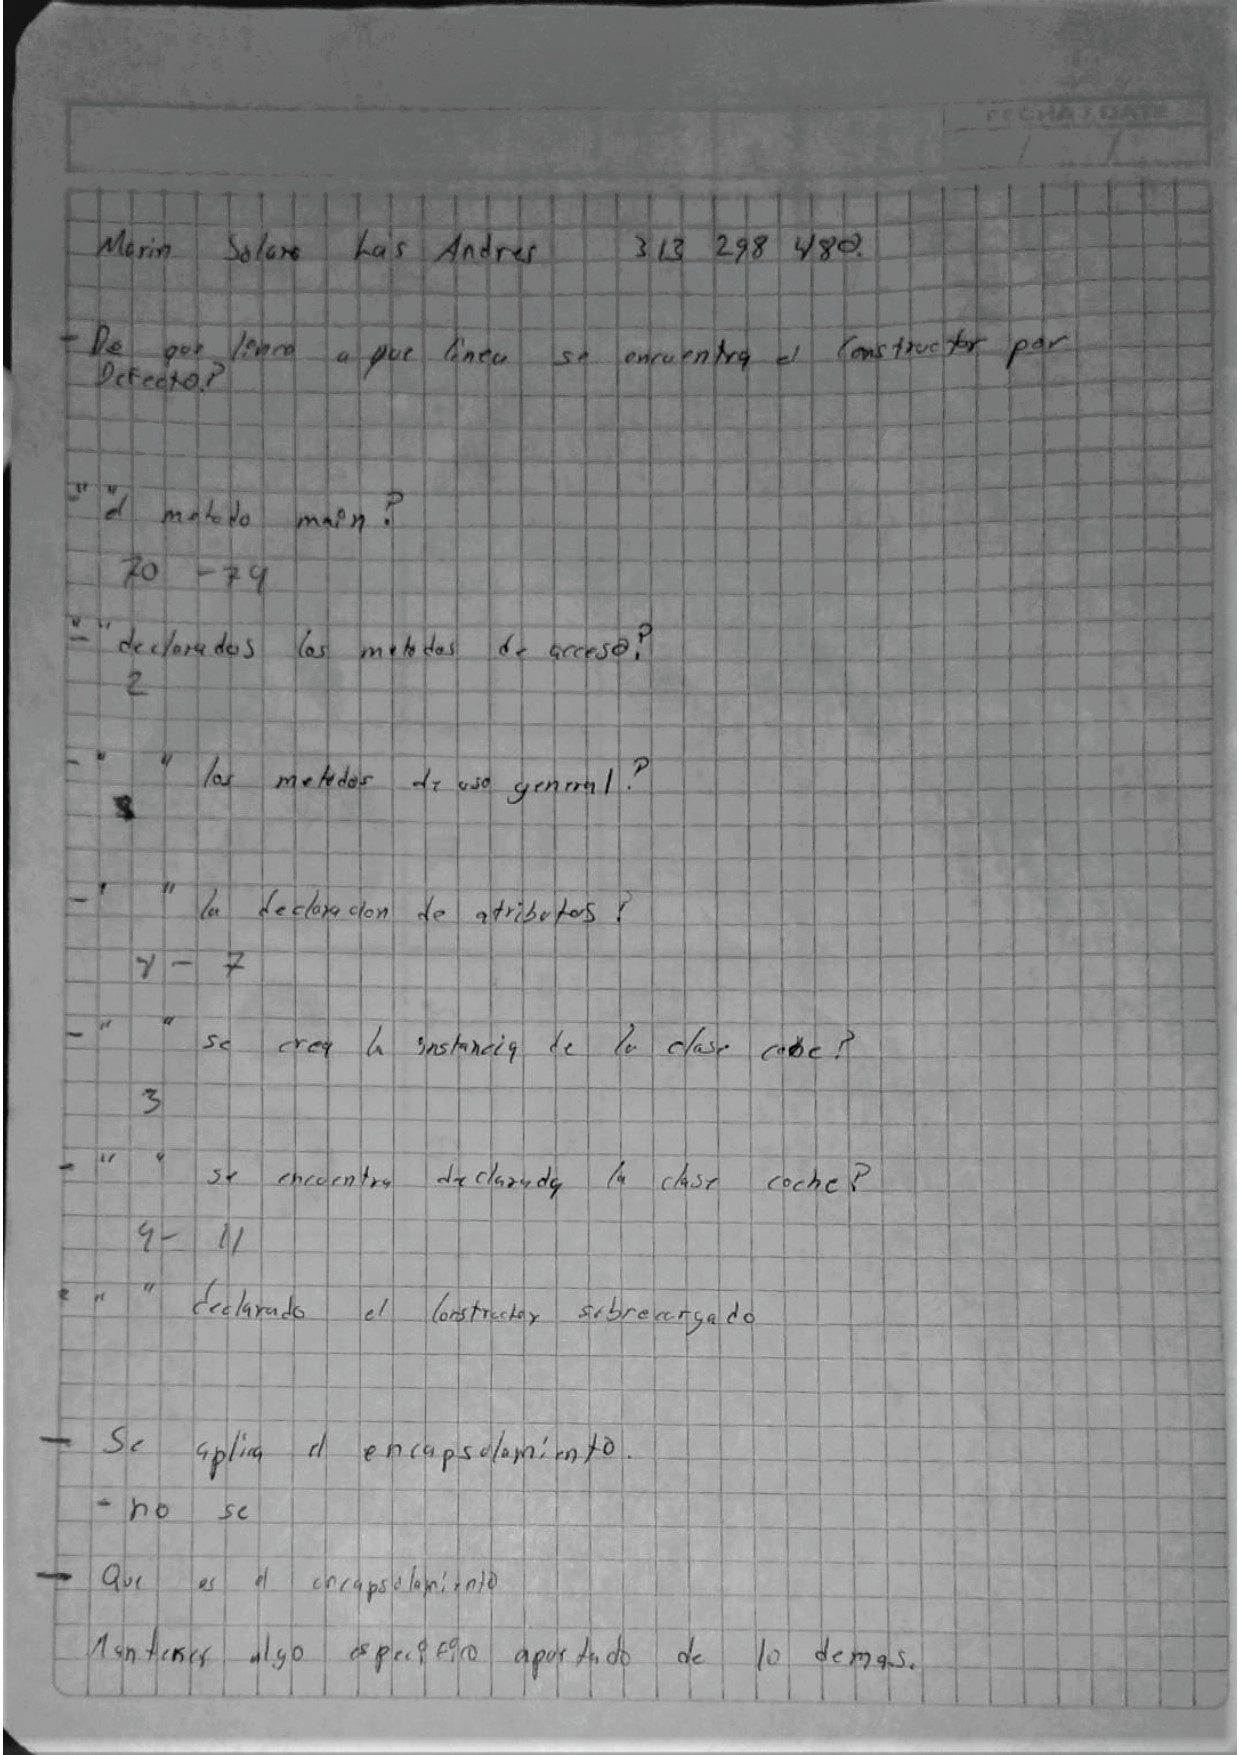 FECHA / DATE
/ /
Marin Solano Luis Andres 313 298 480.
- De que linea a que linea se encuentra el Constructor por
Defecto?
- " " el metodo main?
70 - 79
- " " declarados los metodos de acceso?
2
- " " los metodos de uso general?
- " " la declaracion de atributos?
4 - 7
- " " se crea la instancia de la clase coche?
3
- " " se encuentra declarada la clase coche?
9 - 11
- " " declarado el Constructor sobrecargado
- Se aplica el encapsolamiento.
- no se
- Que es el encapsolamiento
Mantener algo especifico apartado de lo demas.